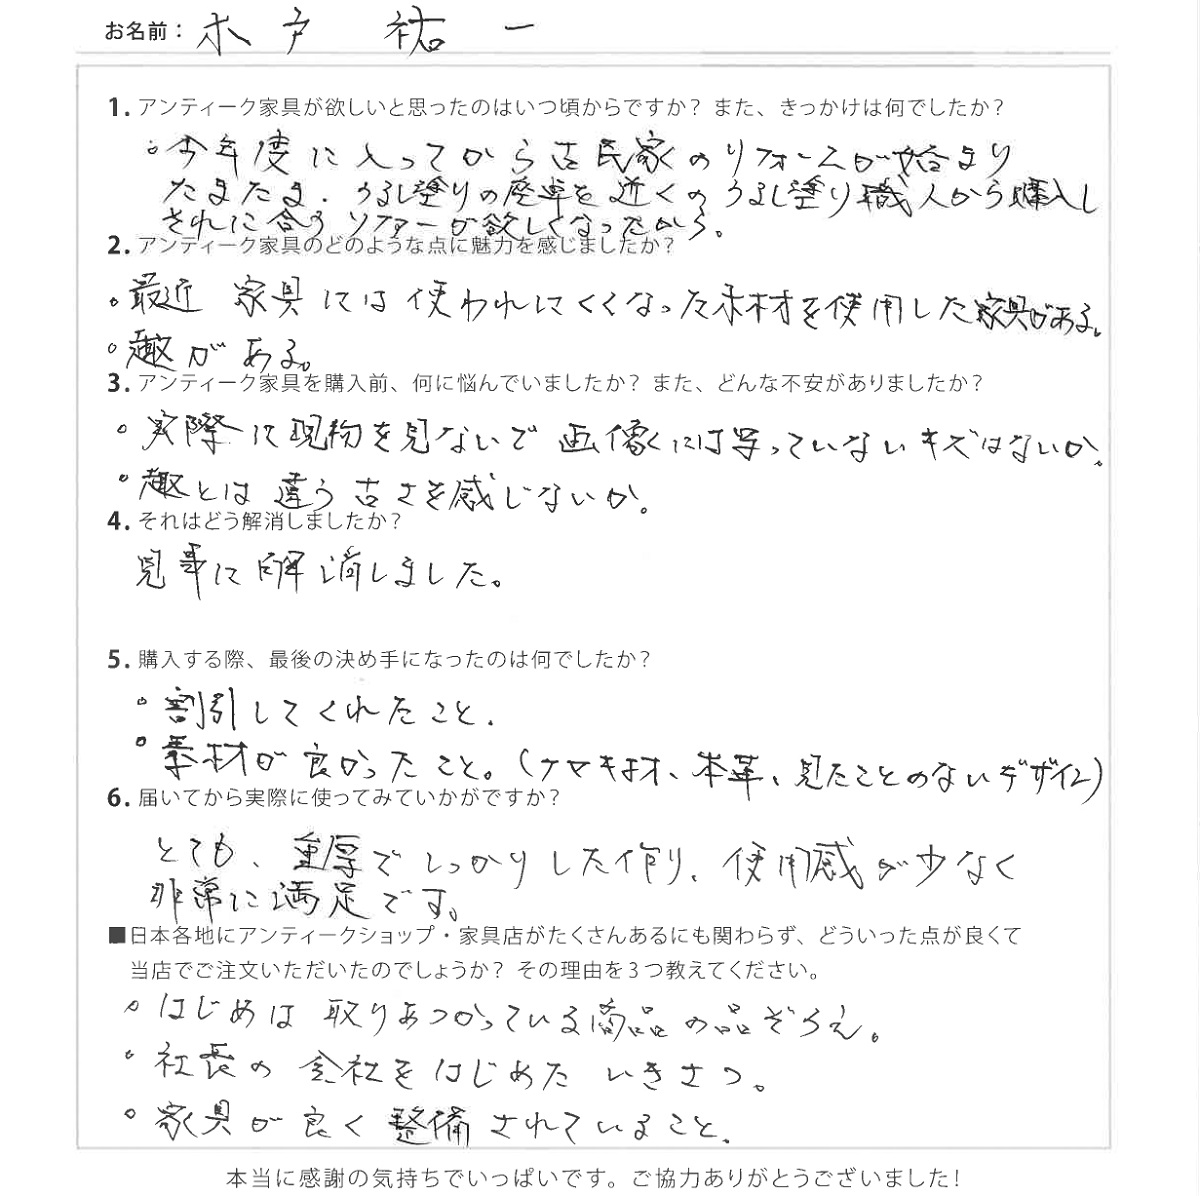 お名前：木戸 祐一
1. アンティーク家具が欲しいと思ったのはいつ頃からですか？ また、きっかけは何でしたか？
。今年度に入ってから古民家のリフォームが始まり
たまたま、うるし塗りの座卓を近くのうるし塗り職人から購入し
それに合うソファーが欲しくなったから。
2. アンティーク家具のどのような点に魅力を感じましたか？
。最近家具には使われにくくなった木材を使用した家具がある。
。趣がある。
3. アンティーク家具を購入前、何に悩んでいましたか？ また、どんな不安がありましたか？
。実際に現物を見ないで画像には写っていないキズはないか。
。趣とは違う古さを感じないか。
4. それはどう解消しましたか？
見事に解消しました。
5. 購入する際、最後の決め手になったのは何でしたか？
。割引してくれたこと、
。素材が良かったこと。（ケヤキ材、本革、見たことのないデザイン）
6. 届いてから実際に使ってみていかがですか？
とても、重厚でしっかりした作り、使用感が少なく
非常に満足です。
■日本各地にアンティークショップ・家具店がたくさんあるにも関わらず、どういった点が良くて
当店でご注文いただいたのでしょうか？ その理由を３つ教えてください。
。はじめは取りあつかっている商品の品ぞろえ。
。社長の会社をはじめたいきさつ。
。家具が良く整備されていること、
本当に感謝の気持ちでいっぱいです。ご協力ありがとうございました！